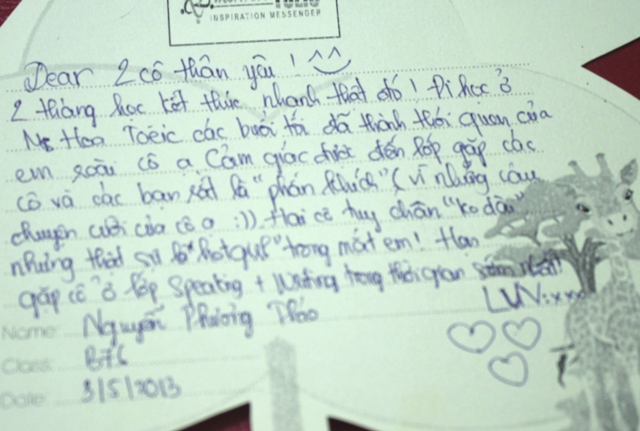 INSPIRATION MESSENGER
Dear 2 cô thân yêu ! ^^
2 tháng học kết thúc nhanh thật đó ! Đi học ở
Ms Hoa Toeic các buổi tối đã thành thói quen của
em rồi cô ạ Cảm giác được đến lớp gặp các
cô và các bạn rất là "phấn khích" (vì những câu
chuyện cười của cô ạ :)) Hai cô tuy chân "ko dài"
nhưng thật sự là "hotgirl" trong mắt em! Hẹn
gặp cô ở lớp Speaking + Writing trong thời gian sớm nhất!
LUV :xxx
Name: Nguyễn Phương Thảo
Class:
Date: 3/5/2013